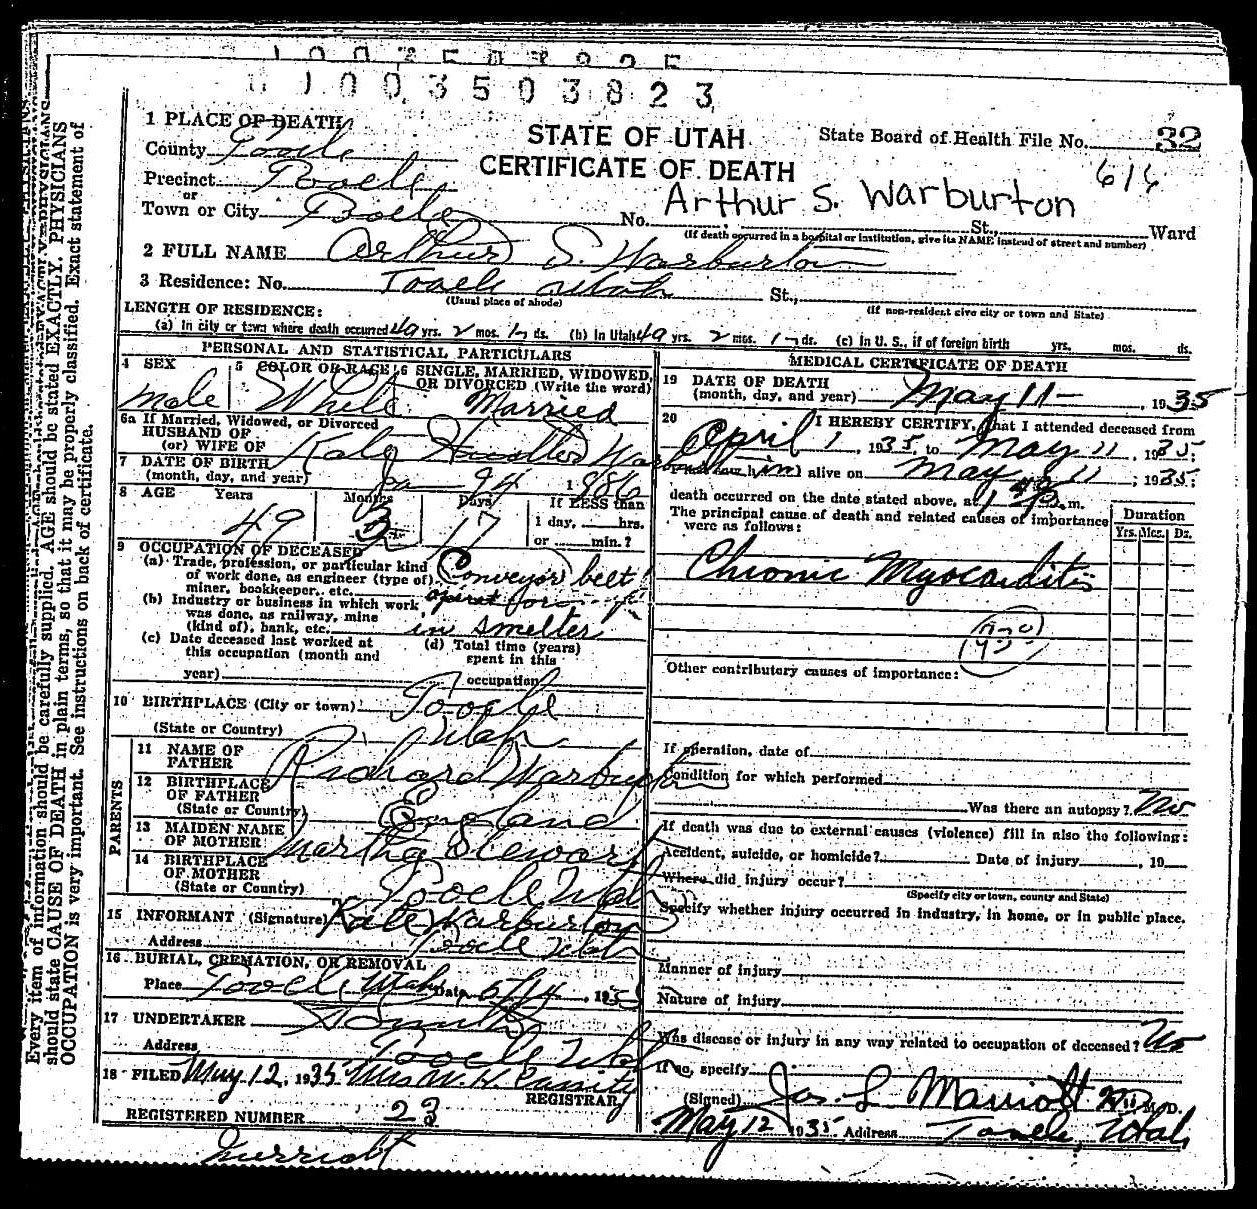 1003503823
1 PLACE OF DEATH
STATE OF UTAH
CERTIFICATE OF DEATH
State Board of Health File No. 32
616
County Tooele
Precinct Tooele
or
Town or City Tooele No. St., Ward
Arthur S. Warburton
(If death occurred in a hospital or institution, give its NAME instead of street and number)
2 FULL NAME Arthur S. Warburton
3 Residence: No. Tooele Utah St.,
(Usual place of abode) (If non-resident give city or town and State)
LENGTH OF RESIDENCE:
(a) In city or town where death occurred 49 yrs. 2 mos. 17 ds. (b) In Utah 49 yrs. 2 mos. 17 ds. (c) In U. S., if of foreign birth yrs. mos. ds.
PERSONAL AND STATISTICAL PARTICULARS
4 SEX
male
5 COLOR OR RACE
White
6 SINGLE, MARRIED, WIDOWED, OR DIVORCED (Write the word)
Married
6a If Married, Widowed, or Divorced
HUSBAND OF
(or) WIFE OF Kate
7 DATE OF BIRTH
(month, day, and year) 24 1886
8 AGE Years Months Days If LESS than
49 17 1 day, hrs.
or min.?
9 OCCUPATION OF DECEASED
(a) Trade, profession, or particular kind
of work done, as engineer (type of),
miner, bookkeeper, etc. Conveyor belt
(b) Industry or business in which work
was done, as railway, mine
(kind of), bank, etc. in smelter
(c) Date deceased last worked at
this occupation (month and
year)
(d) Total time (years)
spent in this
occupation
10 BIRTHPLACE (City or town) Tooele
(State or Country) Utah
PARENTS
11 NAME OF
FATHER Richard Warburton
12 BIRTHPLACE
OF FATHER
(State or Country) England
13 MAIDEN NAME
OF MOTHER Martha Stewart
14 BIRTHPLACE
OF MOTHER
(State or Country) Tooele Utah
15 INFORMANT (Signature) Kate Warburton
Address Tooele Utah
16 BURIAL, CREMATION, OR REMOVAL
Place Tooele Utah Date 5/14, 1935
17 UNDERTAKER
Address Tooele Utah
18 FILED May 12, 1935 Mrs W. H. Cassity
REGISTRAR
REGISTERED NUMBER 23
MEDICAL CERTIFICATE OF DEATH
19 DATE OF DEATH
(month, day, and year) May 11 - , 1935
20 I HEREBY CERTIFY, that I attended deceased from
April 1, 1935, to May 11, 1935;
I last saw him alive on May 11, 1935;
death occurred on the date stated above, at m.
The principal cause of death and related causes of importance
were as follows:
Duration
Yrs. Mos. Ds.
Chronic Myocarditis
Other contributory causes of importance:
If operation, date of
Condition for which performed
Was there an autopsy? No
If death was due to external causes (violence) fill in also the following:
Accident, suicide, or homicide? Date of injury , 19
Where did injury occur?
(Specify city or town, county and State)
Specify whether injury occurred in industry, in home, or in public place.
Manner of injury
Nature of injury
Was disease or injury in any way related to occupation of deceased? No
If so, specify
(Signed) Jos. L Marriott M. D.
May 12 1935 Address Tooele, Utah
Every item of information should be carefully supplied. AGE should be stated EXACTLY. PHYSICIANS
should state CAUSE OF DEATH in plain terms, so that it may be properly classified. Exact statement of
OCCUPATION is very important. See instructions on back of certificate.